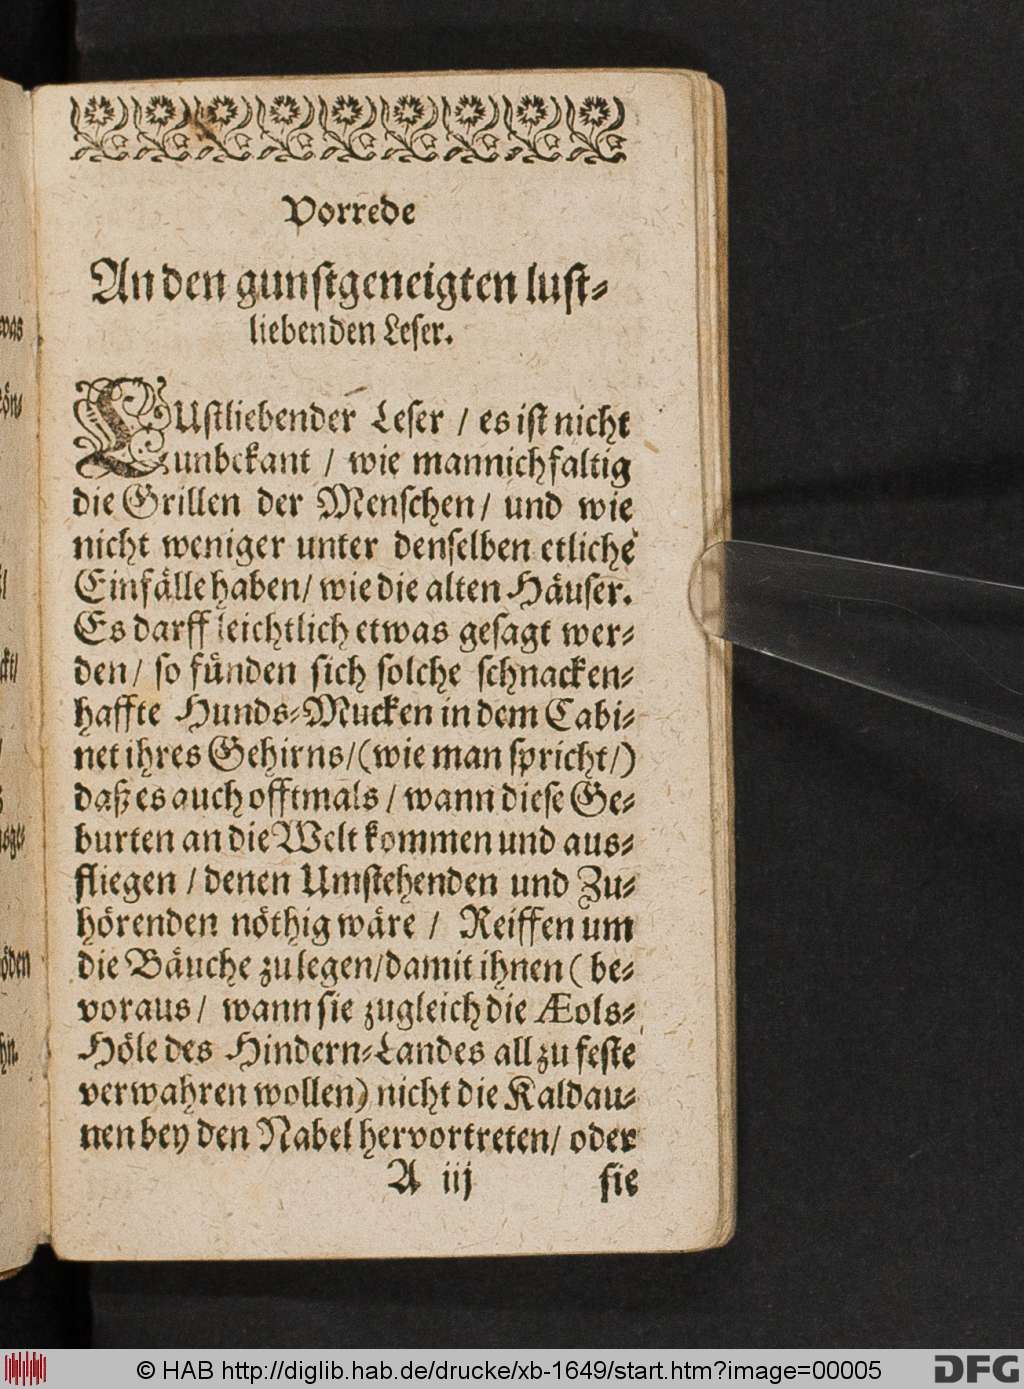 Vorrede
An den gunstgeneigten lust-
liebenden Leser.
LUstliebender Leser / es ist nicht
unbekant / wie mannichfaltig
die Grillen der Menschen / und wie
nicht weniger unter denselben etliche
Einfälle haben / wie die alten Häuser.
Es darff leichtlich etwas gesagt wer-
den / so fünden sich solche schnacken-
haffte Hunds-Mucken in dem Cabi-
net ihres Gehirns / (wie man spricht /)
daß es auch offtmals / wann diese Ge-
burten an die Welt kommen und aus-
fliegen / denen Umstehenden und Zu-
hörenden nöthig wäre / Reiffen um
die Bäuche zu legen / damit ihnen (be-
voraus / wann sie zugleich die Æols-
Höle des Hindern-Landes all zu feste
verwahren wollen) nicht die Kaldau-
nen bey den Nabel hervortreten / oder
A iij sie
© HAB http://diglib.hab.de/drucke/xb-1649/start.htm?image=00005
DFG